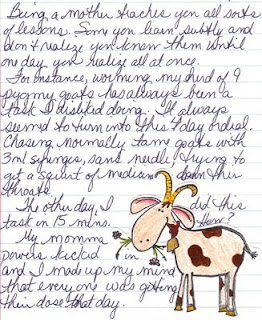 Being a mother teaches you all sorts
of lessons. Some you learn subtly and
don't realize you know them until
one day you realize all at once.
For instance, worming my herd of 9
pygmy goats has always been a
task I disliked doing. It always
seemed to turn into this 1 day ordeal.
Chasing normally tame goats with
3ml syringes, sans needle, trying to
get a squirt of medicine down their
throats.
The other day, I did this
task in 15 mins. How?
My momma
powers kicked in
and I made up my mind
that every one was getting
their dose that day.